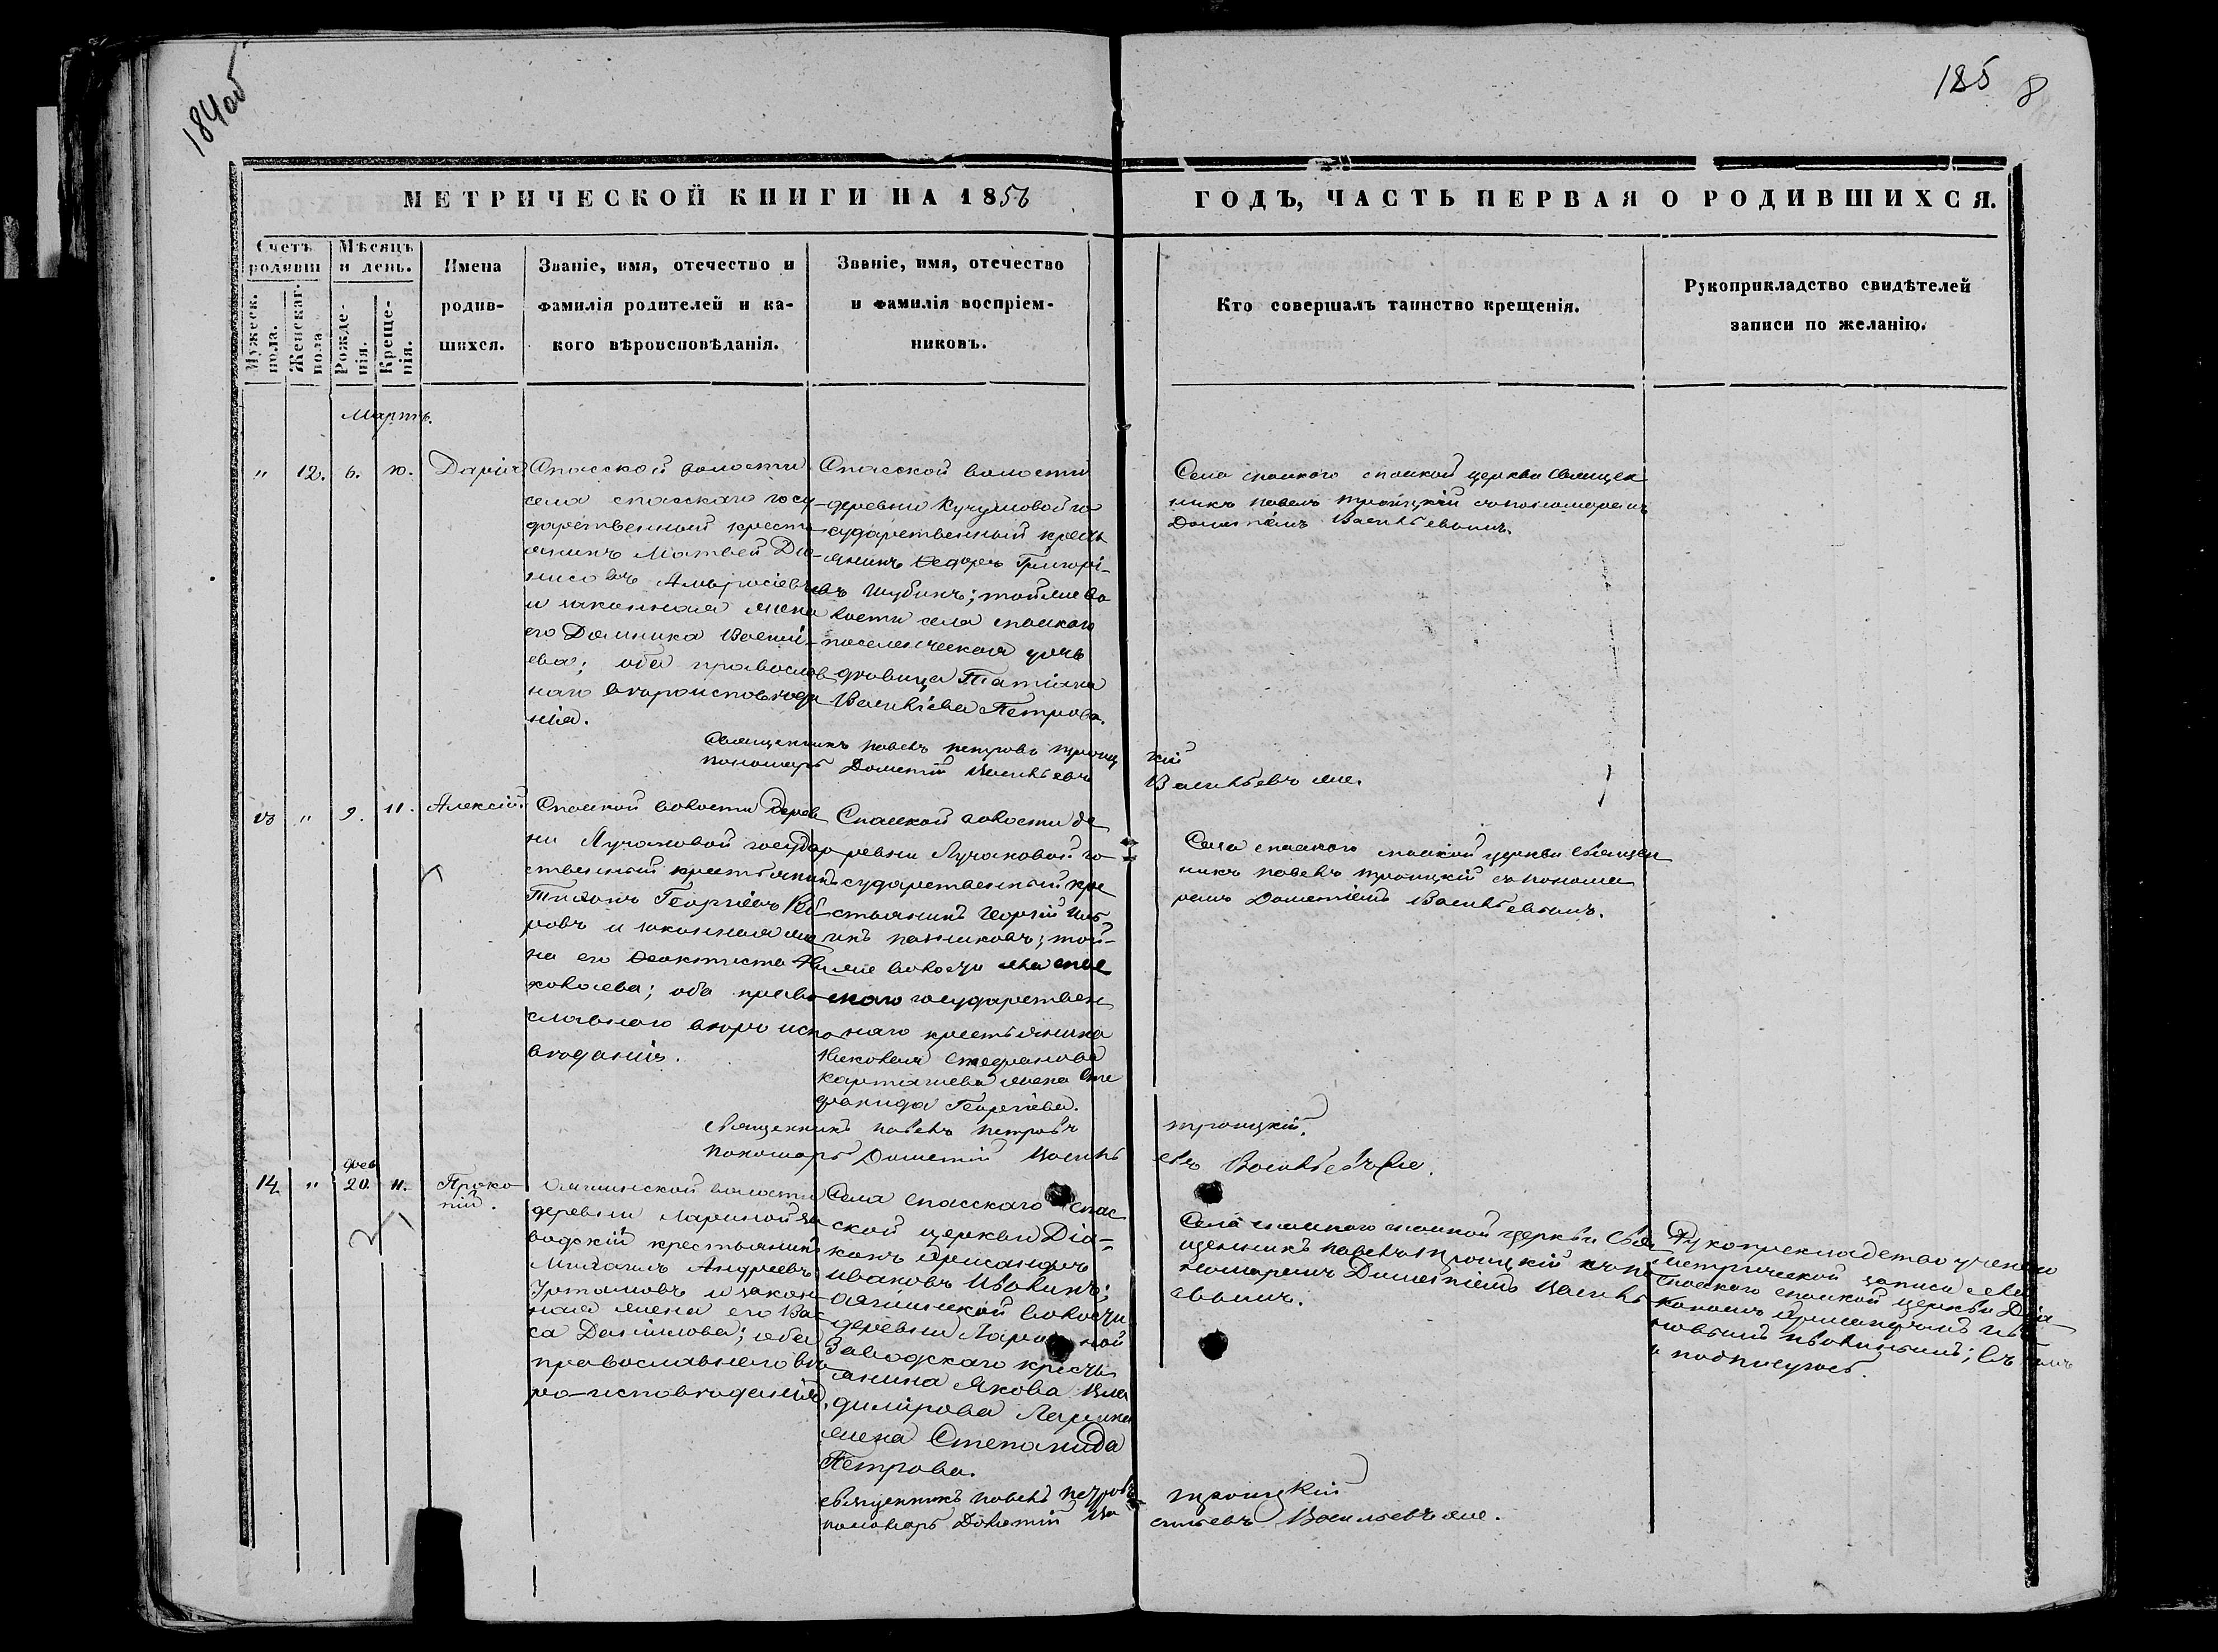 184об
185 8
МЕТРИЧЕСКОЙ КНИГИ НА 1856
ГОДЪ, ЧАСТЬ ПЕРВАЯ О РОДИВШИХСЯ.
Счетъ родивш
Мужеск. пола.
Женскаг. пола
Мѣсяцъ и день.
Рожде-нія.
Креще-нія.
Имена
родив-
шихся.
Званіе, имя, отечество и
фамилія родителей и ка-
кого вѣроисповѣданія.
Званіе, имя, отечество
и фамилія воспріем-
никовъ.
Кто совершалъ таинство крещенія.
Рукоприкладство свидѣтелей
записи по желанію.
Мартъ.
" 12. 6. 10. Дарія
Спасской волости
села спасскаго госу
дарственный крест
янинъ Матвей Діо
нисовъ
и законная жена
его Домника Васил
ева; оба православ
наго вѣроисповѣда
нія.
Спасской волости
деревни Кучумовой го
сударственный кресть
янинъ Ѳедоръ Григорі
евъ Шубинъ; той же во
лости села спаскаго
поселенческая дочь
дѣвица Татіана
Васильева Петрова.
Села спаского спаской церкви священ
никъ павелъ троицкій съ пономаремъ
Дометіемъ Васильевымъ.
Священникъ павелъ петровъ троиц
кій
пономарь Дометій Васильевъ
Васильевъ же.
" 9. 11. Алексій.
Спаской волости дерев
ни Лучановой государ
ственный крестьянинъ
Тихонъ Георгіевъ
ровъ и законная же
на его Ѳеоктиста Ни
колаева; оба право
славного вѣро исп
вѣданія.
Спаской волости де
ревни Лучановой го
сударственный кре
стьянинъ Георгій
той
же волости села спас
скаго государствен
наго крестьянина
Николая Стефанова
Карташева жена Сте
фанида Георгіева.
Села спаского спаской церкви священ
никъ павелъ троицкій съ понома
ремъ Дометіемъ Васильевымъ.
священникъ павелъ петровъ
троицкій.
пономарь Дометій Василь
евъ Васильевъ же.
14. " фев 20. 11. Проко
пій.
волости
деревни Лариной за
водскій крестьянинъ
Михаилъ Андреевъ
и закон
ная жена его Ва
са Даніилова; оба
православнаго вѣ
ро-исповѣданія.
Села спасскаго спас
ской церкви Діа=
конъ Александръ
Ивановъ
волости
деревни Лариной
Заводскаго кресть
янина Якова Вла
димірова Ларина
жена Степанида
Петрова.
Села спаского спаской церкви Свя
щенникъ павелъ троицкій съ по
номаремъ Дометіемъ Василь
евымъ.
Рукоприкладство учинено
метрической записи села
спаского спаской церкви Діа
кономъ Александромъ Ива
новымъ
и подписуюсь.
священникъ павелъ петровъ
троицкій
пономарь Дометій Ва
сильевъ Васильевъ же.